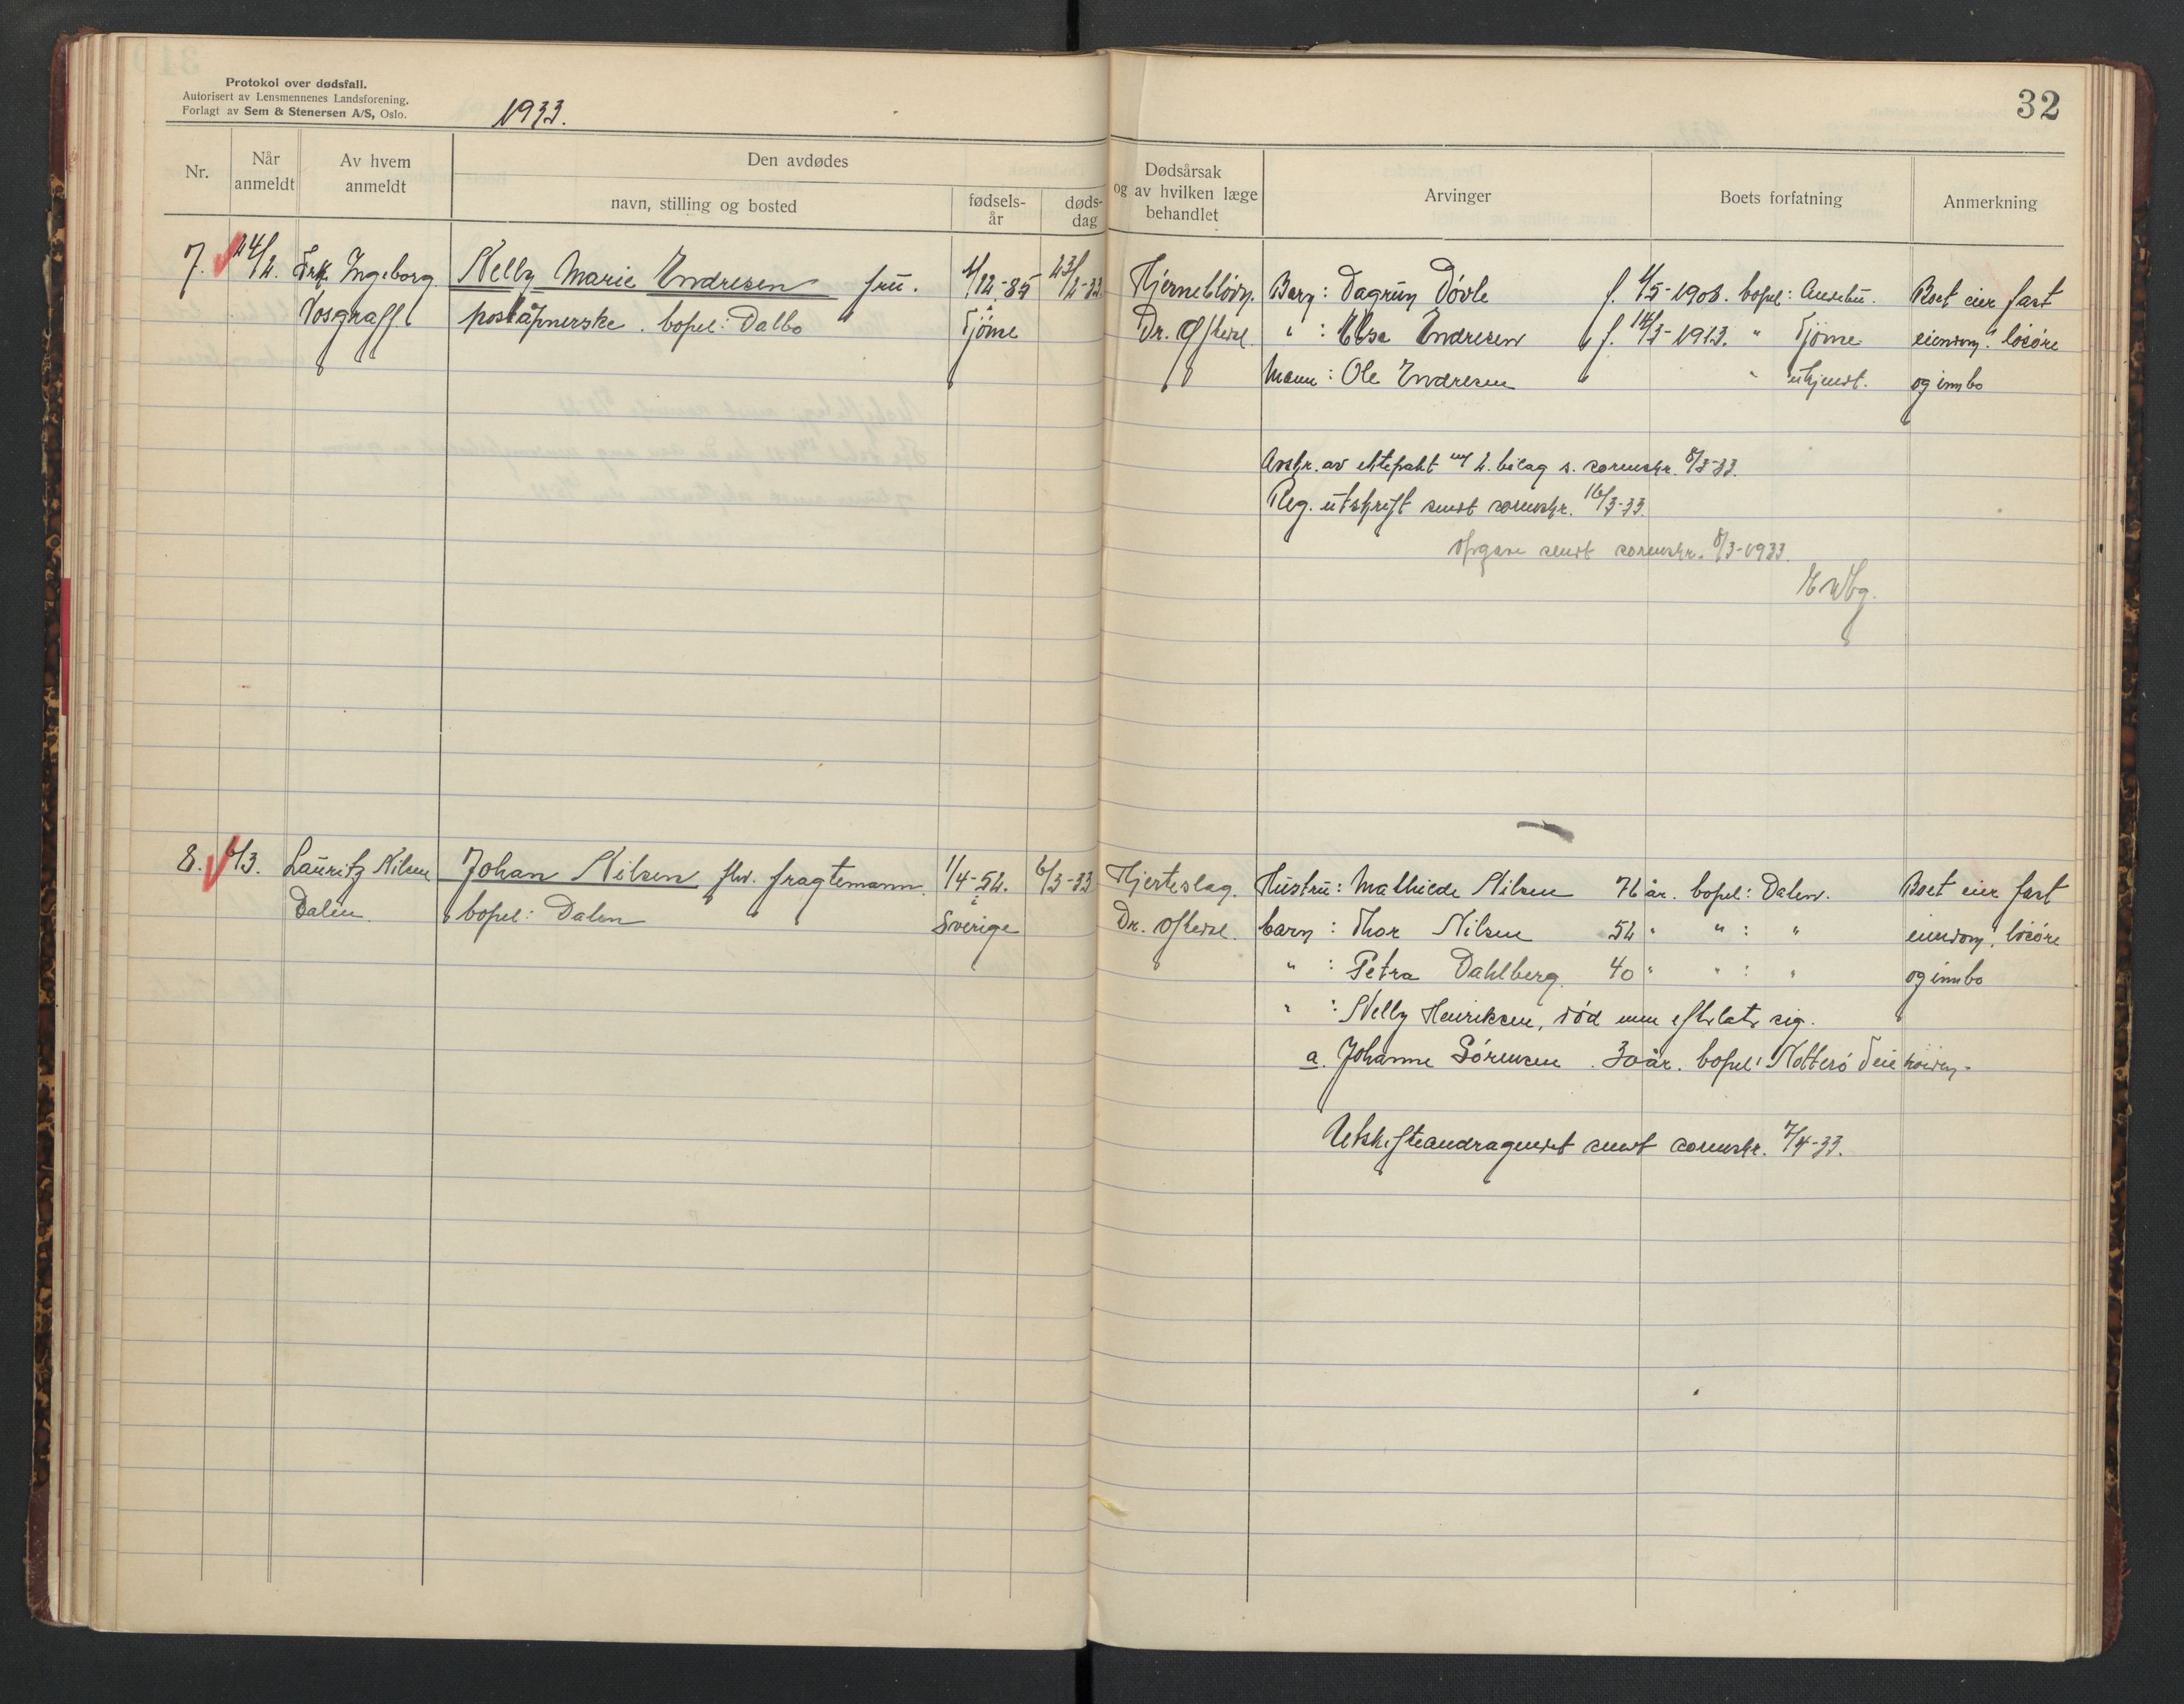 Protokol over dødsfall.
Autorisert av Lensmennenes Landsforening.
Forlagt av Sem & Stenersen A/S, Oslo.
1933.
32
Nr.
Når anmeldt
Av hvem anmeldt
Den avdødes
navn, stilling og bosted
fødsels-år
døds-dag
Dødsårsak og av hvilken læge behandlet
Arvinger
Boets forfatning
Anmerkning
7. 24/2. Frk. Ingeborg Nelly Marie Endresen fru. /12-85 23/2-33 Hjerneblødn. Barn: Dagrun Døvle f. /5-1908. bopel: Andebu. Boet eier fast
Vosgraff poståpnerske. bopel: Dalbo Tjøme Dr. Oftedal. " : Elsa Endresen f. 14/3-1913. " Tjøme eiendom, løsøre
Mann: Ole Endresen " ukjendt. og innbo
Avskr. av ektepakt m/ 2. bilag s. sorenskr. 8/3-33.
Reg. utskrift sendt sorenskr. 16/3-33.
Opgave sendt sorenskr. 8/3-1933.
8. 6/3. Lauritz Nilsen Johan Nilsen fhv. fragtemann. 1/4-52. 6/3-33 Hjerteslag. Hustru: Mathilde Nilsen 76 år. bopel: Dalen. Boet eier fast
Dalen. bopel: Dalen i Sverige Dr. Oftedal. barn: Thor Nilsen 52 " " : " eiendom, løsøre
" : Petra Dahlberg. 40 " " : " og innbo
" : Nelly Henriksen, død men efterlater sig.
a. Johanne Sørensen. 30 år. bopel: Nøtterø Teie
Utskifteandragendet sendt sorenskr. 7/4-33.